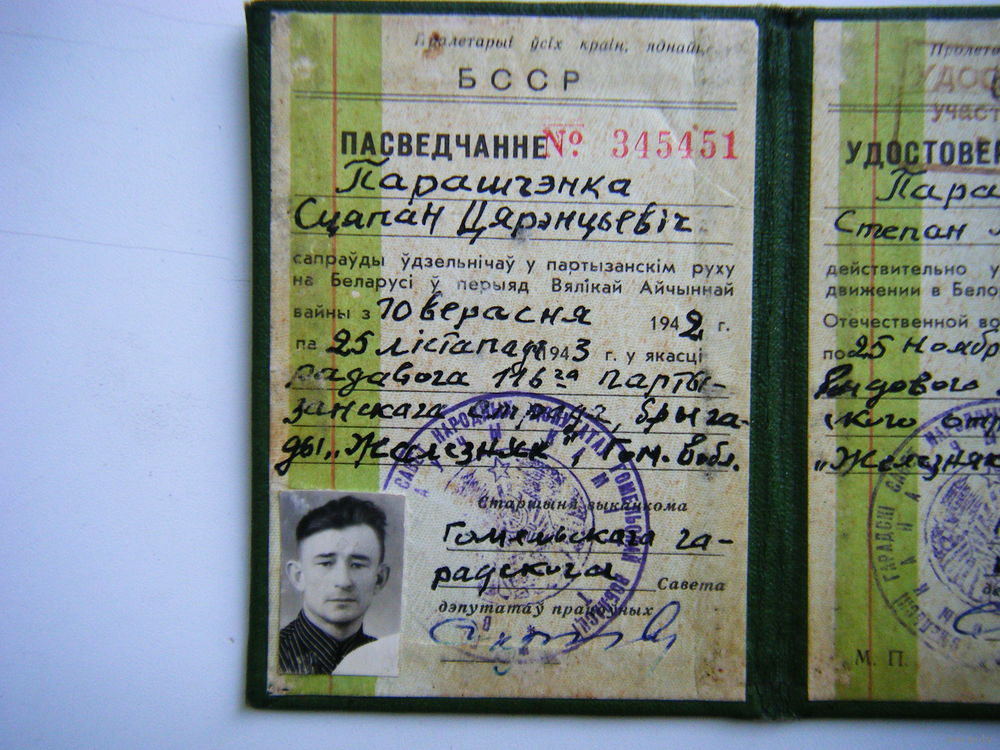 Пралетарыі ўсіх краін, яднайце
БССР
ПАСВЕДЧАННЕ № 345451
Парашчэнка
Сцапан Цярэнцьевіч
сапраўды ўдзельнічаў у партызанскім руху
на Беларусі ў перыяд Вялікай Айчыннай
вайны з 10 верасня 1942 г.
па 25 лістапада 1943 г. у якасці
радавога 116га парты-
занскага атрада, брыга-
ды „Жалязняк", Гом. вобл.
Старшыня выканкома
Гомельскага га-
радскога Савета
дэпутатаў працоўных
Пролета
УДОС
участ
УДОСТОВЕР
Пара
Степан
действительно у
движении в Бело
Отечественной во
по 25 ноябр
рядового
ского отр
„Железняк
М. П.